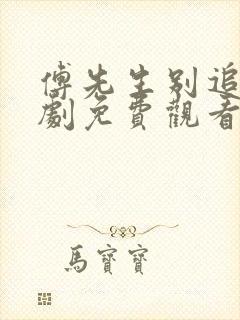 傅先生别追
劇免費觀看
馬寶寶